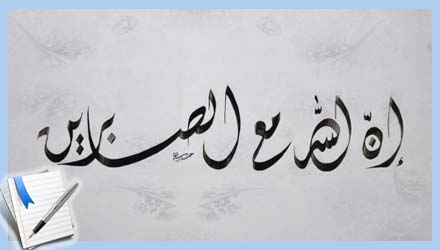 إنّ اللّٰه مع الصابرين